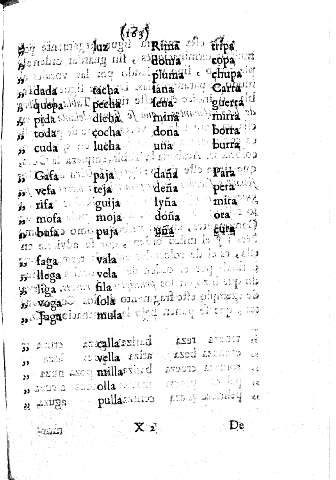 (163)
„ luz Rima tripa
„ doma copa
„ pluma chupa
„ dada tacha lana Carra
„ quepa pecha lena guerra
„ pida dicha mina mirra
„ toda cocha dona borra
„ cuda lucha una burra
„ Gasa paja daña Para
„ vesa teja deña pera
„ risa guija lyña mira
„ mosa moja doña ora
„ busa puja uña cura
„ faga vala
„ llega vela
„ liga fila
„ voga sola
„ Juga mula
„ calla
„ vella
„ milla
„ olla
„ pulla
X 2 De